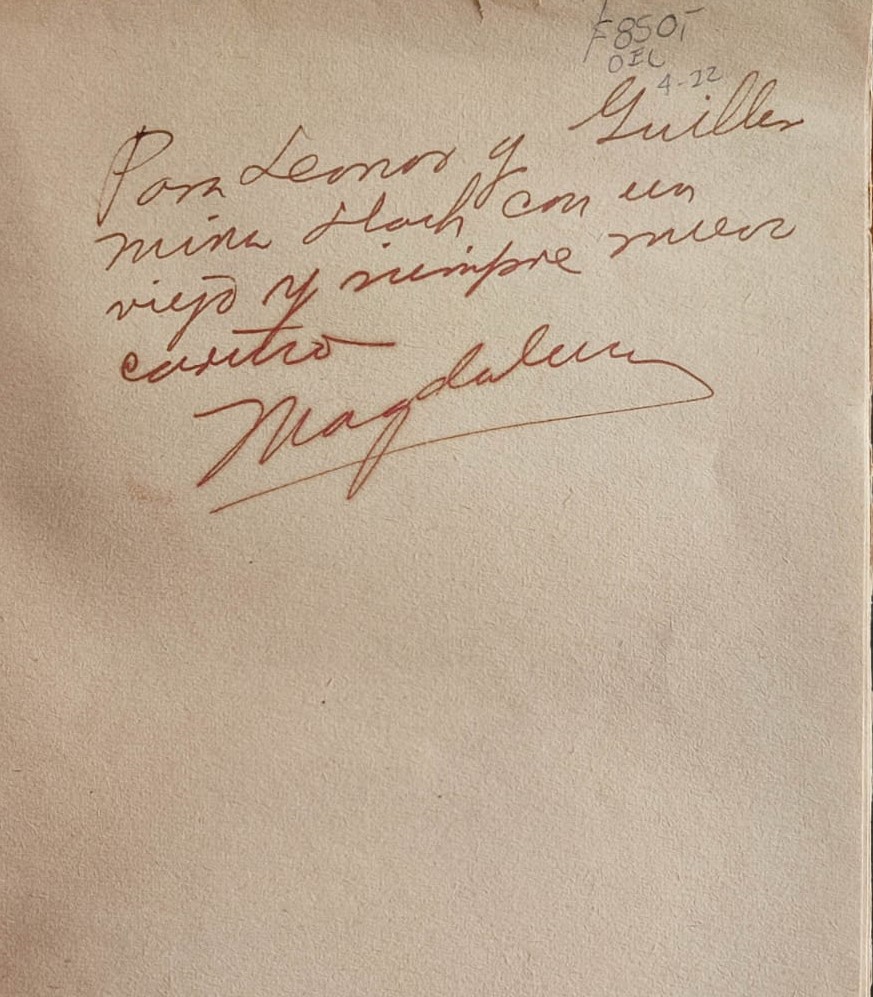 F8501
OEL
4-22
Para Leonor y Guiller
mina Llach con un
viejo y siempre nuevo
cariño
Magdalena